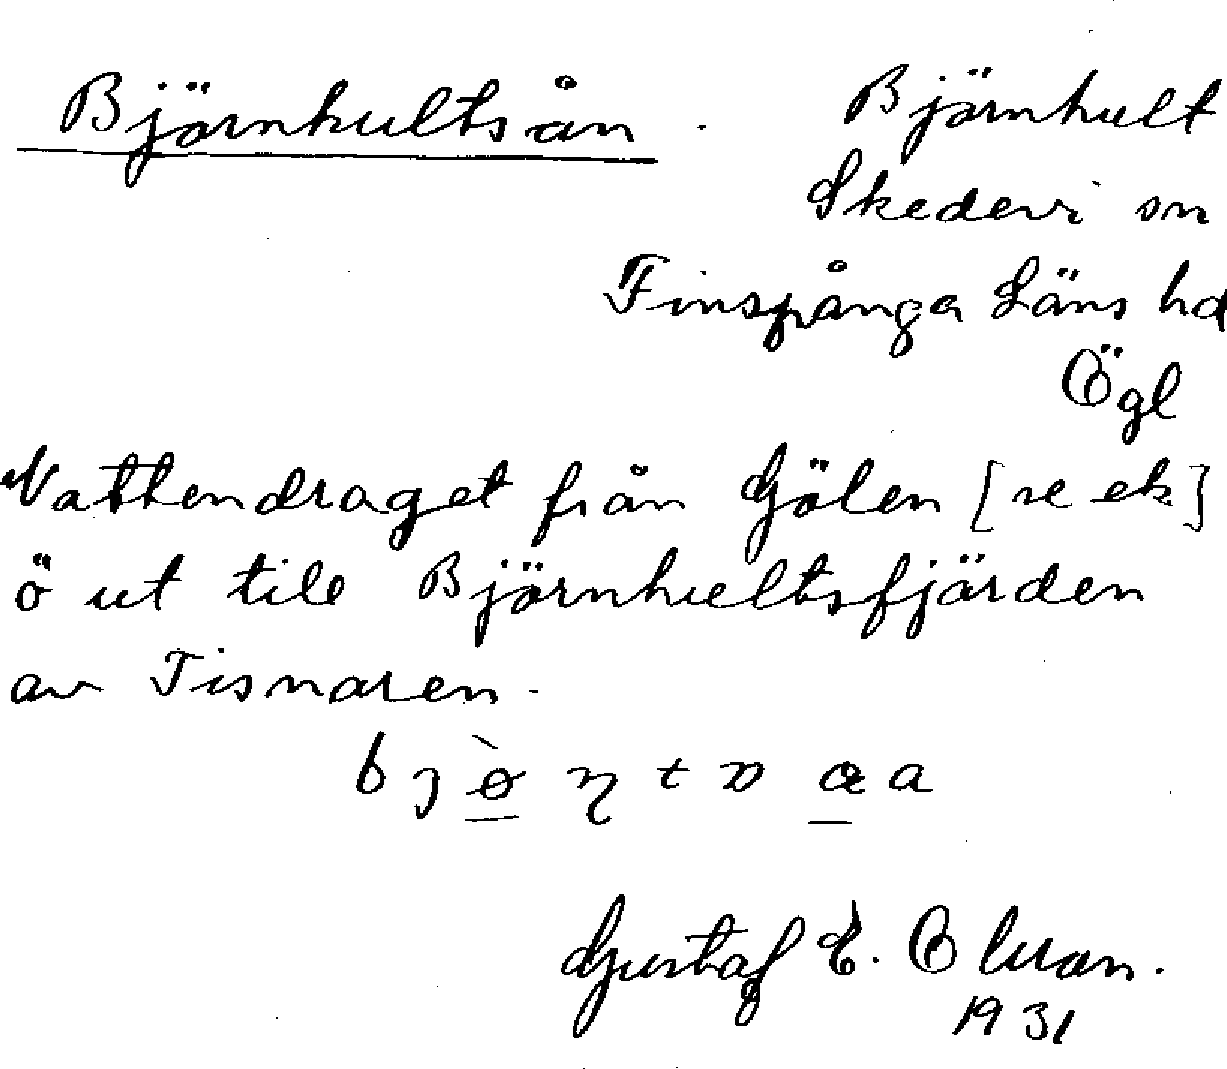 Björnhultsån. Björnhult
Skedevi sn
Finspånga Läns hd
Ögl
Vattendraget från Gölen [se ek]
ö ut till Björnhultsfjärden
av Tisnaren.
Gustaf E. Olsson.
1931